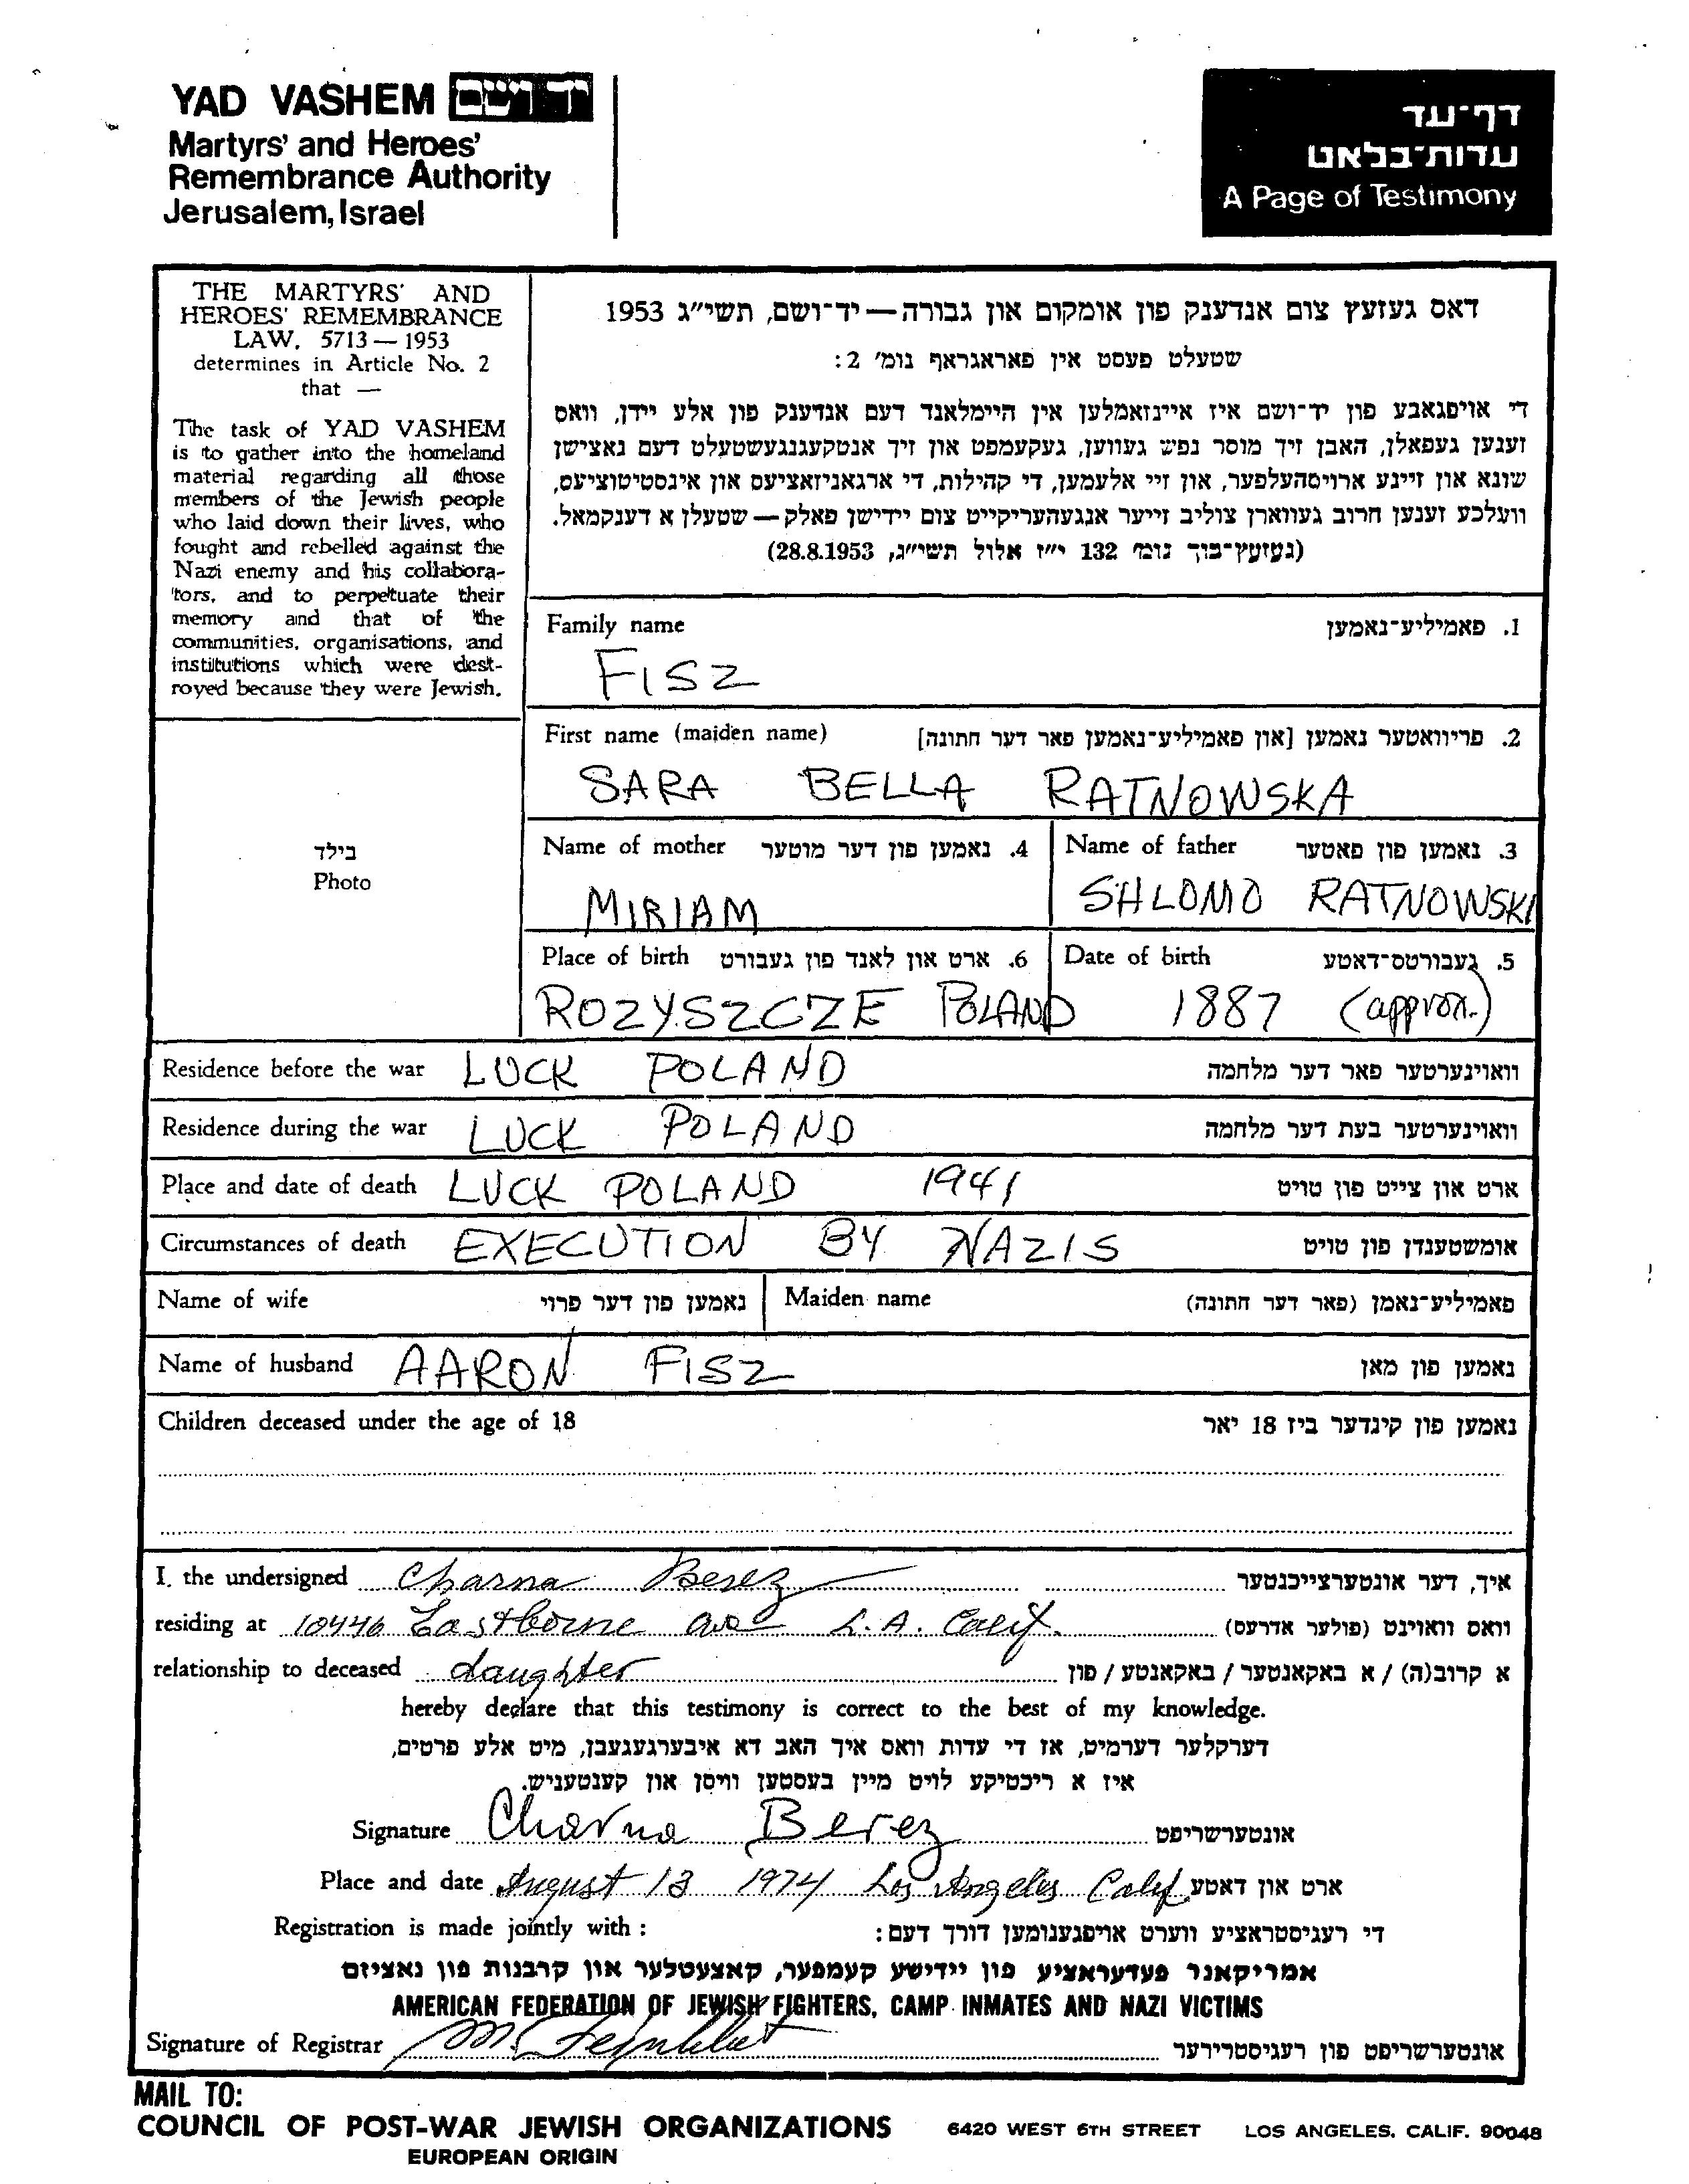 YAD VASHEM יד ושם
Martyrs' and Heroes'
Remembrance Authority
Jerusalem, Israel
דף-עד
עדות-בלאט
A Page of Testimony
THE MARTYRS' AND
HEROES' REMEMBRANCE
LAW, 5713 — 1953
determines in Article No. 2
that —
The task of YAD VASHEM
is to gather into the homeland
material regarding all those
members of the Jewish people
who laid down their lives, who
fought and rebelled against the
Nazi enemy and his collabora-
tors, and to perpetuate their
memory and that of the
communities, organisations, and
institutions which were dest-
royed because they were Jewish.
דאס געזעץ צום אנדענק פון אומקום און גבורה — יד-ושם, תשי״ג 1953
שטעלט פעסט אין פאראגראף נומ׳ 2:
די אויפגאבע פון יד-ושם איז איינזאמלען אין היימלאנד דעם אנדענק פון אלע יידן, וואס
זענען געפאלן, האבן זיך מוסר נפש געווען, געקעמפט און זיך אנטקעגנגעשטעלט דעם נאצישן
שונא און זיינע ארויסהעלפער, און זיי אלעמען, די קהילות, די ארגאניזאציעס און אינסטיטוציעס,
וועלכע זענען חרוב געווארן צוליב זייער אנגעהעריקייט צום יידישן פאלק — שטעלן א דענקמאל.
(געזעץ-בוך נומ׳ 132 י״ז אלול תשי״ג, 28.8.1953)
Family name 1. פאמיליע-נאמען
FISZ
First name (maiden name) 2. פריוואטער נאמען [און פאמיליע-נאמען פאר דער חתונה]
SARA BELLA RATNOWSKA
בילד
Photo
Name of mother 4. נאמען פון דער מוטער Name of father 3. נאמען פון פאטער
MIRIAM SHLOMO RATNOWSKI
Place of birth 6. ארט און לאנד פון געבורט Date of birth 5. געבורטס-דאטע
ROZYSZCZE POLAND 1887 (approx.)
Residence before the war LUCK POLAND וואוינערטער פאר דער מלחמה
Residence during the war LUCK POLAND וואוינערטער בעת דער מלחמה
Place and date of death LUCK POLAND 1941 ארט און צייט פון טויט
Circumstances of death EXECUTION BY NAZIS אומשטענדן פון טויט
Name of wife נאמען פון דער פרוי Maiden name פאמיליע-נאמן (פאר דער חתונה)
Name of husband AARON FISZ נאמען פון מאן
Children deceased under the age of 18 נאמען פון קינדער ביז 18 יאר
I, the undersigned Charna Berez איך, דער אונטערצייכנטער
residing at 10446 Eastborne ave L.A. Calif. וואס וואוינט (פולער אדרעס)
relationship to deceased daughter א קרוב(ה) / א באקאנטער / באקאנטע / פון
hereby declare that this testimony is correct to the best of my knowledge.
דערקלער דערמיט, אז די עדות וואס איך האב דא איבערגעגעבן, מיט אלע פרטים,
איז א ריכטיקע לויט מיין בעסטען וויסן און קענטעניש.
Signature Charna Berez אונטערשריפט
Place and date August 13 1974 Los Angeles Calif ארט און דאטע
Registration is made jointly with : די רעגיסטראציע ווערט אויפגענומען דורך דעם:
אמריקאנר פעדעראציע פון יידישע קעמפער, קאצעטלער און קרבנות פון נאציזם
AMERICAN FEDERATION OF JEWISH FIGHTERS, CAMP INMATES AND NAZI VICTIMS
Signature of Registrar M. אונטערשריפט פון רעגיסטרירער
MAIL TO:
COUNCIL OF POST-WAR JEWISH ORGANIZATIONS 6420 WEST 6TH STREET LOS ANGELES, CALIF. 90048
EUROPEAN ORIGIN